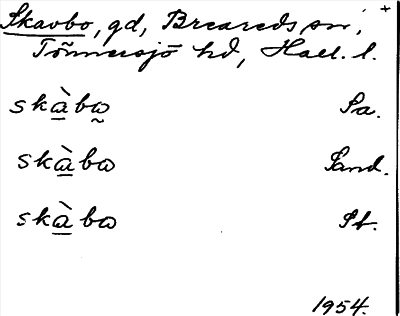 Skavbo, gd, Breareds sn, +
Tönnersjö hd, Hall. l.
skàbɷ Sa.
skàbɷ Sand.
skàbɷ St.
1954.